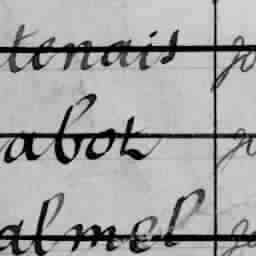 tenais
abot
almel